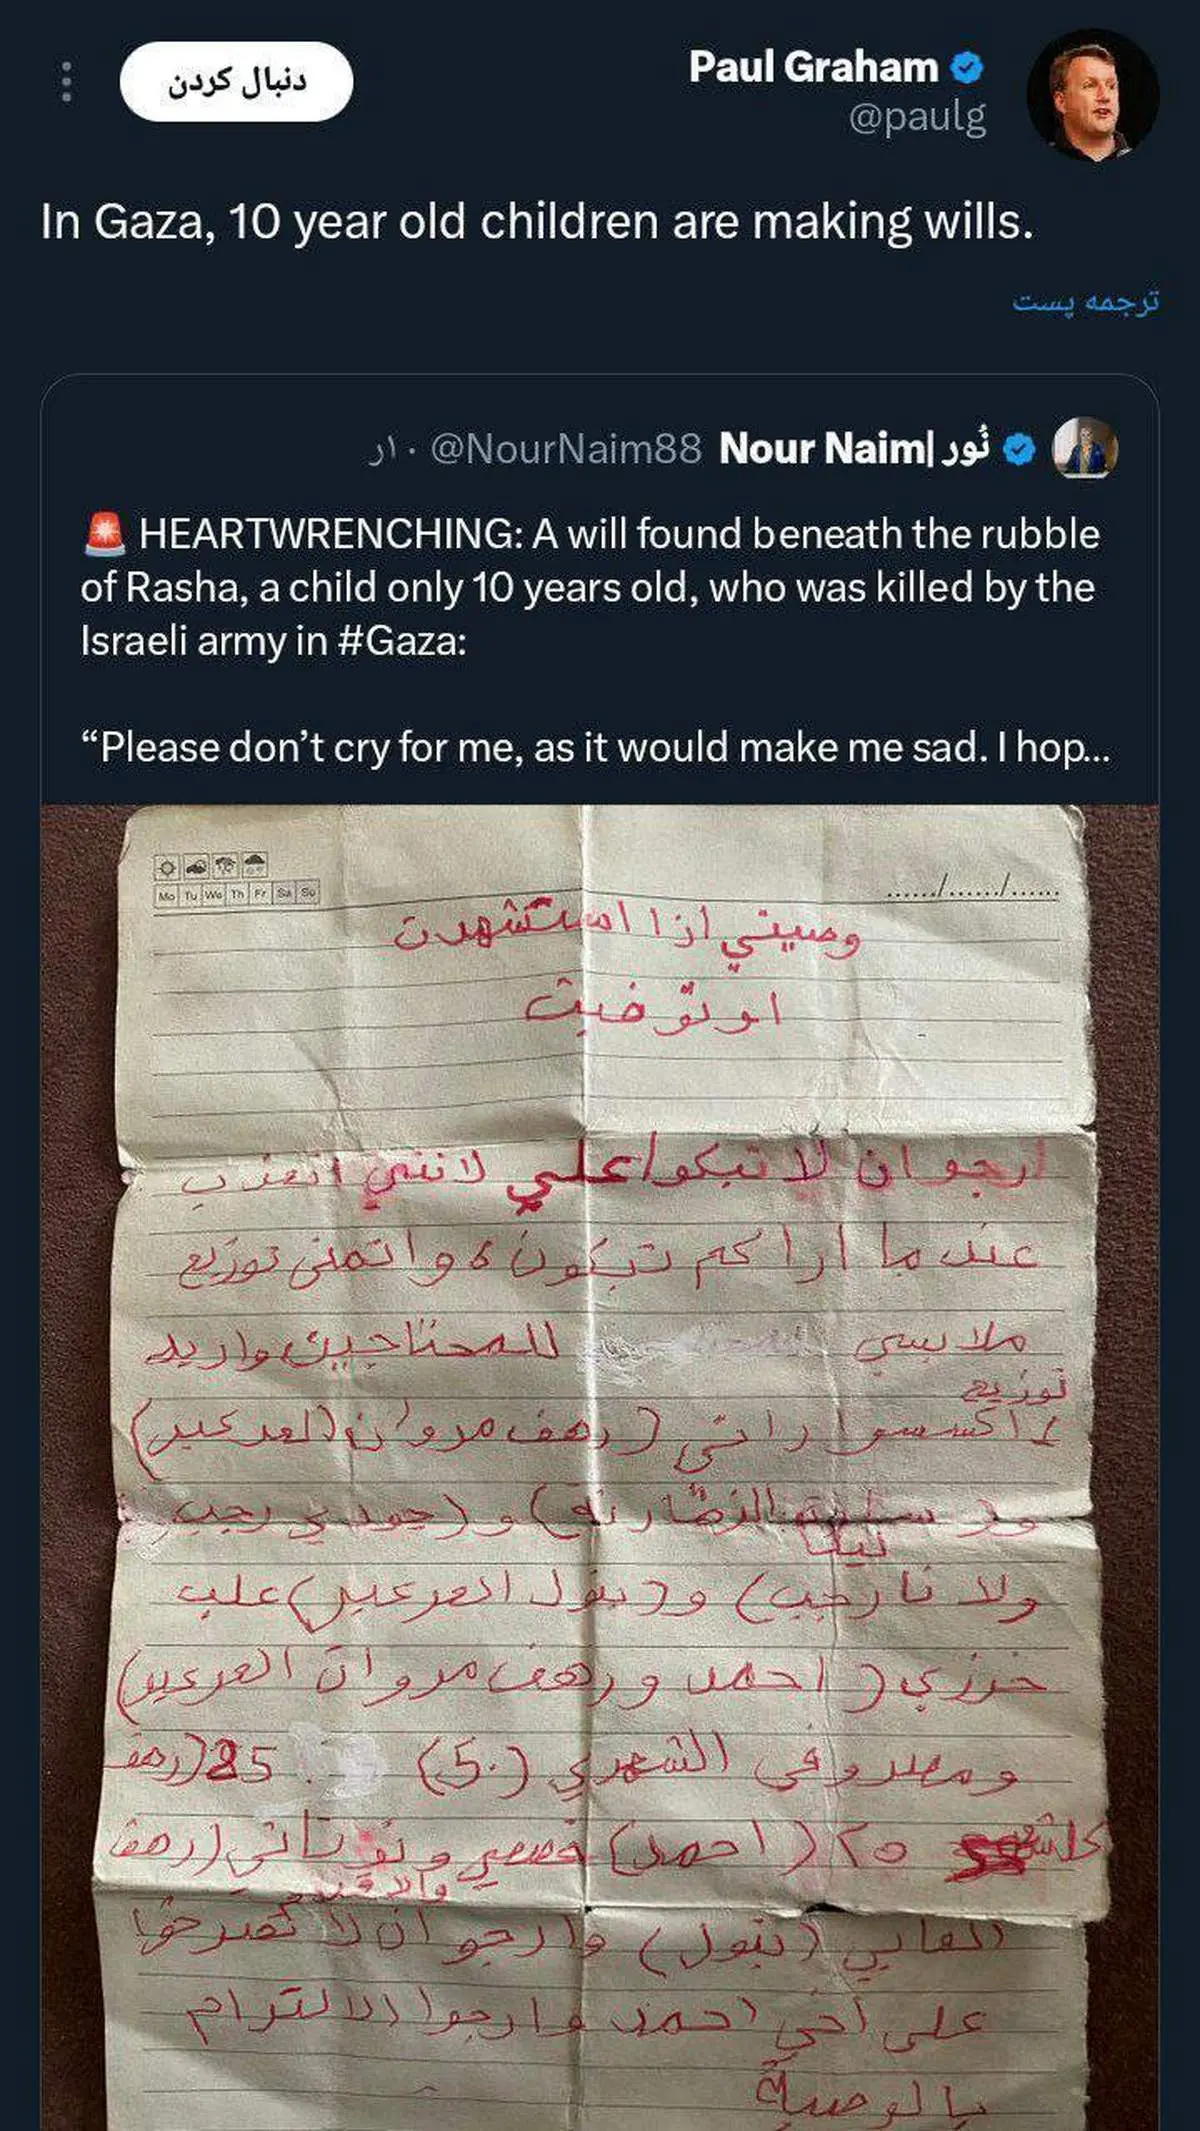 دنبال کردن
Paul Graham
@paulg
In Gaza, 10 year old children are making wills.
ترجمه پست
Nour Naim| نُور @NourNaim88 · ۱ر
🚨 HEARTWRENCHING: A will found beneath the rubble
of Rasha, a child only 10 years old, who was killed by the
Israeli army in #Gaza:
“Please don’t cry for me, as it would make me sad. I hop...
Mo Tu We Th Fr Sa Su
....../....../......
وصيتي اذا استشهدت
او توفيت
ارجو ان لا تبكوا علي لانني اتعذب
عندما اراكم تبكون، واتمنى توزيع
ملابسي للمحتاجين واريد
توزيع
اكسسواراتي (رهف مروان العرعير)
و و (جودي رجب
ولانا رجب) و (بتول العرعير) علب
خرزي (احمد ورهف مروان العرعير)
ومصروفي الشهري (50) 25 (رهف
٢٥ (احمد) قصصي ودفتراتي (رهف
العابي (بتول) وارجو ان لا تصرخوا
على اخي احمد وارجوا الالتزام
بالوصية